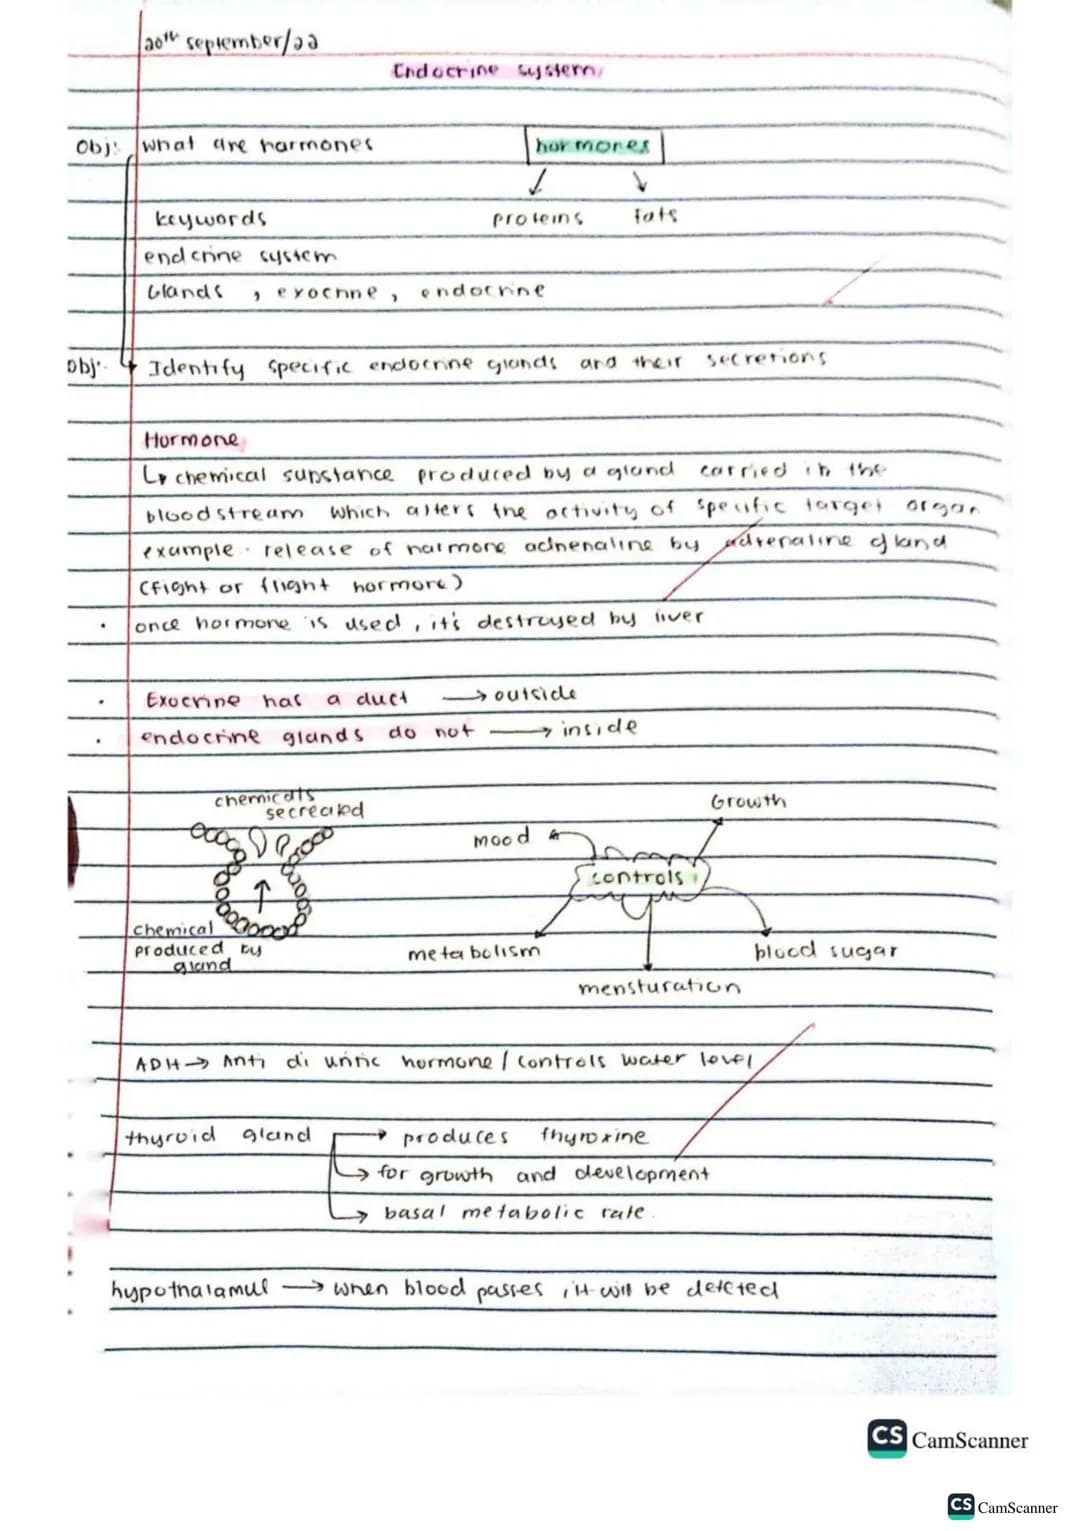 20th september/22
Endocrine system
Obj: what are harmones
hormones
proteins fats
keywords
endcrine system
Glands , exocrine , endocrine
Obj: Identify specific endocrine glands and their secretions
Hormone
chemical substance produced by a gland carried in the
bloodstream which alters the activity of specific target organ
example : release of harmone adrenaline by adrenaline gland
(fight or flight hormone)
once hormone is used , it's destroyed by liver
Exocrine has a duct → outside
endocrine glands do not → inside
chemicals
secreated
Growth
mood
controls
chemical
produced by
gland
metabolism
blood sugar
mensturation
ADH → Anti di uritic hormone / controls water level
thyroid gland → produces thyroxine
→ for growth and development
→ basal metabolic rate
hypothalamus → when blood passes , it will be detcted
CS CamScanner
CS CamScanner